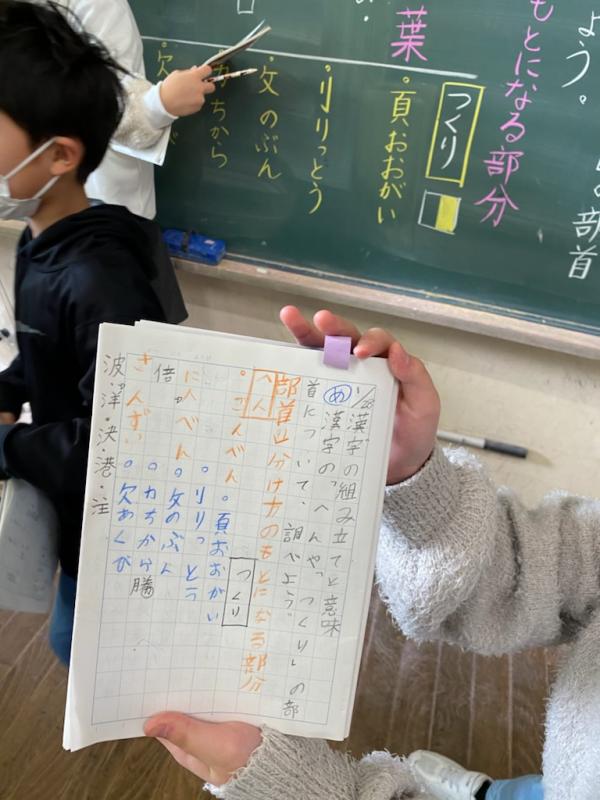 よう。
部首
もとになる部分
つくり
葉
・頁おおがい
・刂りっとう
・攵のぶん
・力ちから
・欠
1/28 漢字の組み立てと意味
め 漢字の「へんや「つくり」の部
首について、調べよう。
部首 分け方のもとになる部分
へん
つくり
・ごんべん
。頁おおがい
にんべん
。刂りっとう
倍
。攵のぶん
さんずい
。力ちから 勝
。欠あくび
波・洋・決・港・注